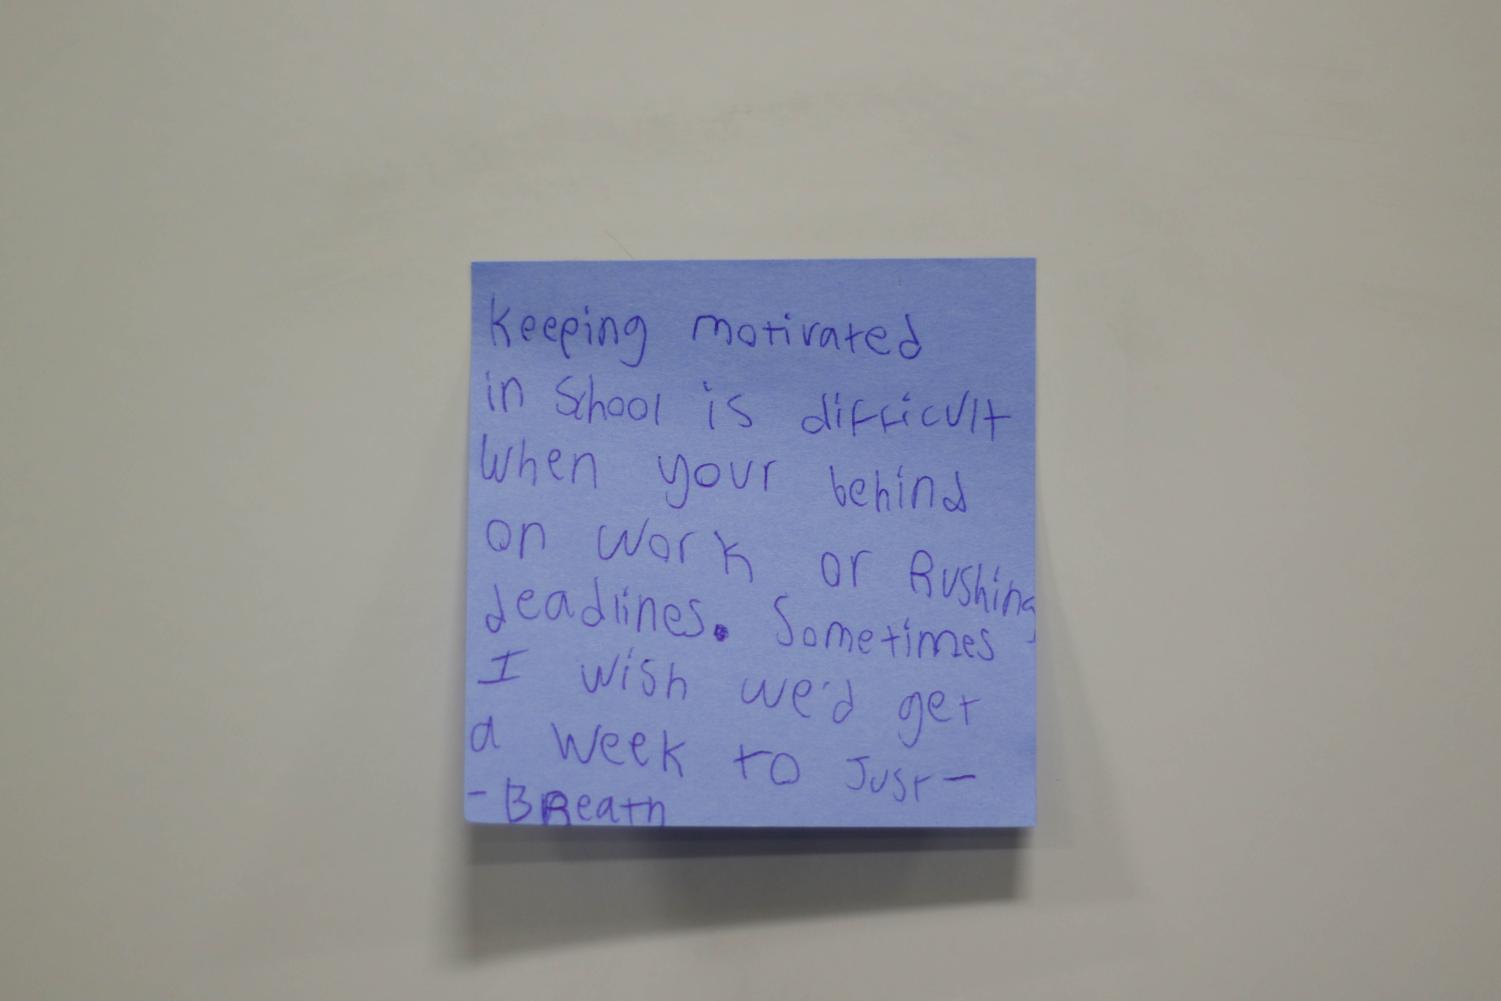 Keeping motivated
in School is difficult
When your behind
on work or Rushing
deadlines. Sometimes
I wish we'd get
a week to Just-
- BReath